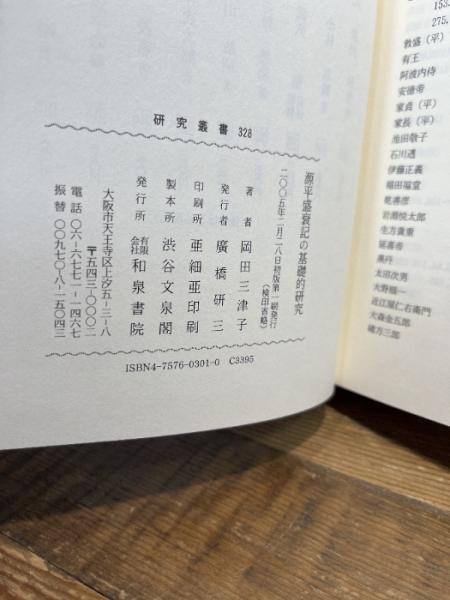 研究叢書 328
源平盛衰記の基礎的研究
二〇〇五年二月二八日初版第一刷発行
（検印省略）
著者 岡田三津子
発行者 廣橋研三
印刷所 亜細亜印刷
製本所 渋谷文泉閣
発行所 有限会社 和泉書院
大阪市天王寺区上汐五-三-八
〒五四三-〇〇〇二
電話 〇六-六七七一-一四六七
振替 〇〇九七〇-八-一五〇四三
ISBN4-7576-0301-0 C3395
153.
275.
敦盛（平）
有王
阿波内侍
安徳帝
家貞（平）
家長（平）
池田敬子
石川透
伊藤正義
稲田福堂
乾善彦
岩淵悦太郎
生方貴重
延喜帝
奥丹
太田次男
大野順一
近江屋仁右衛門
大森金五郎
緒方三郎